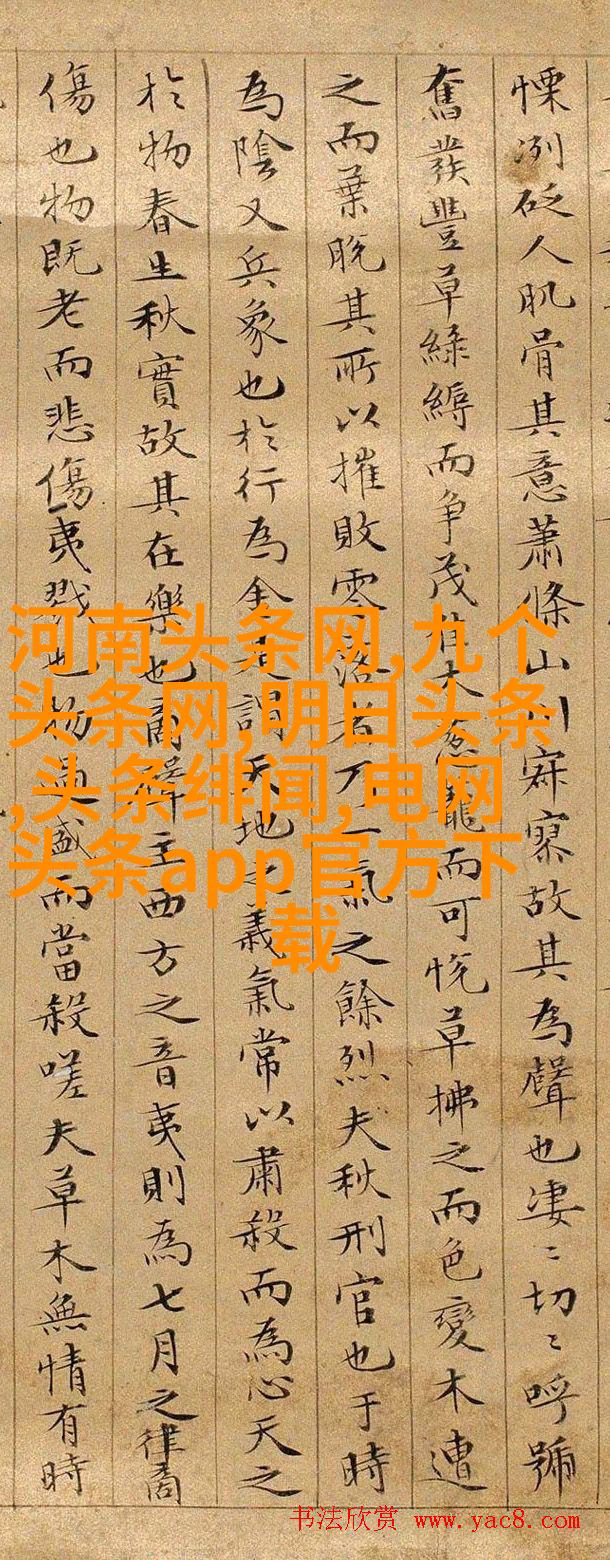 慄冽砭人肌骨其意蕭條山川寂寥故其為聲也凄〻切〻呼號
奮發豐草綠縟而争茂佳木蔥蘢而可悅草拂之而色變木遭
之而葉脫其所以摧敗零落者乃一氣之餘烈夫秋刑官也于時
為陰又兵象也於行為金是謂天地之義氣常以肅殺而為心天之
於物春生秋實故其在樂也商聲主西方之音夷則為七月之律商
傷也物既老而悲傷夷戮也物過盛而當殺嗟夫草木無情有時
河南头条网,九个
头条网,明日头条
,头条绯闻,电网
头条app官方下
载
书法欣赏 www.yac8.com